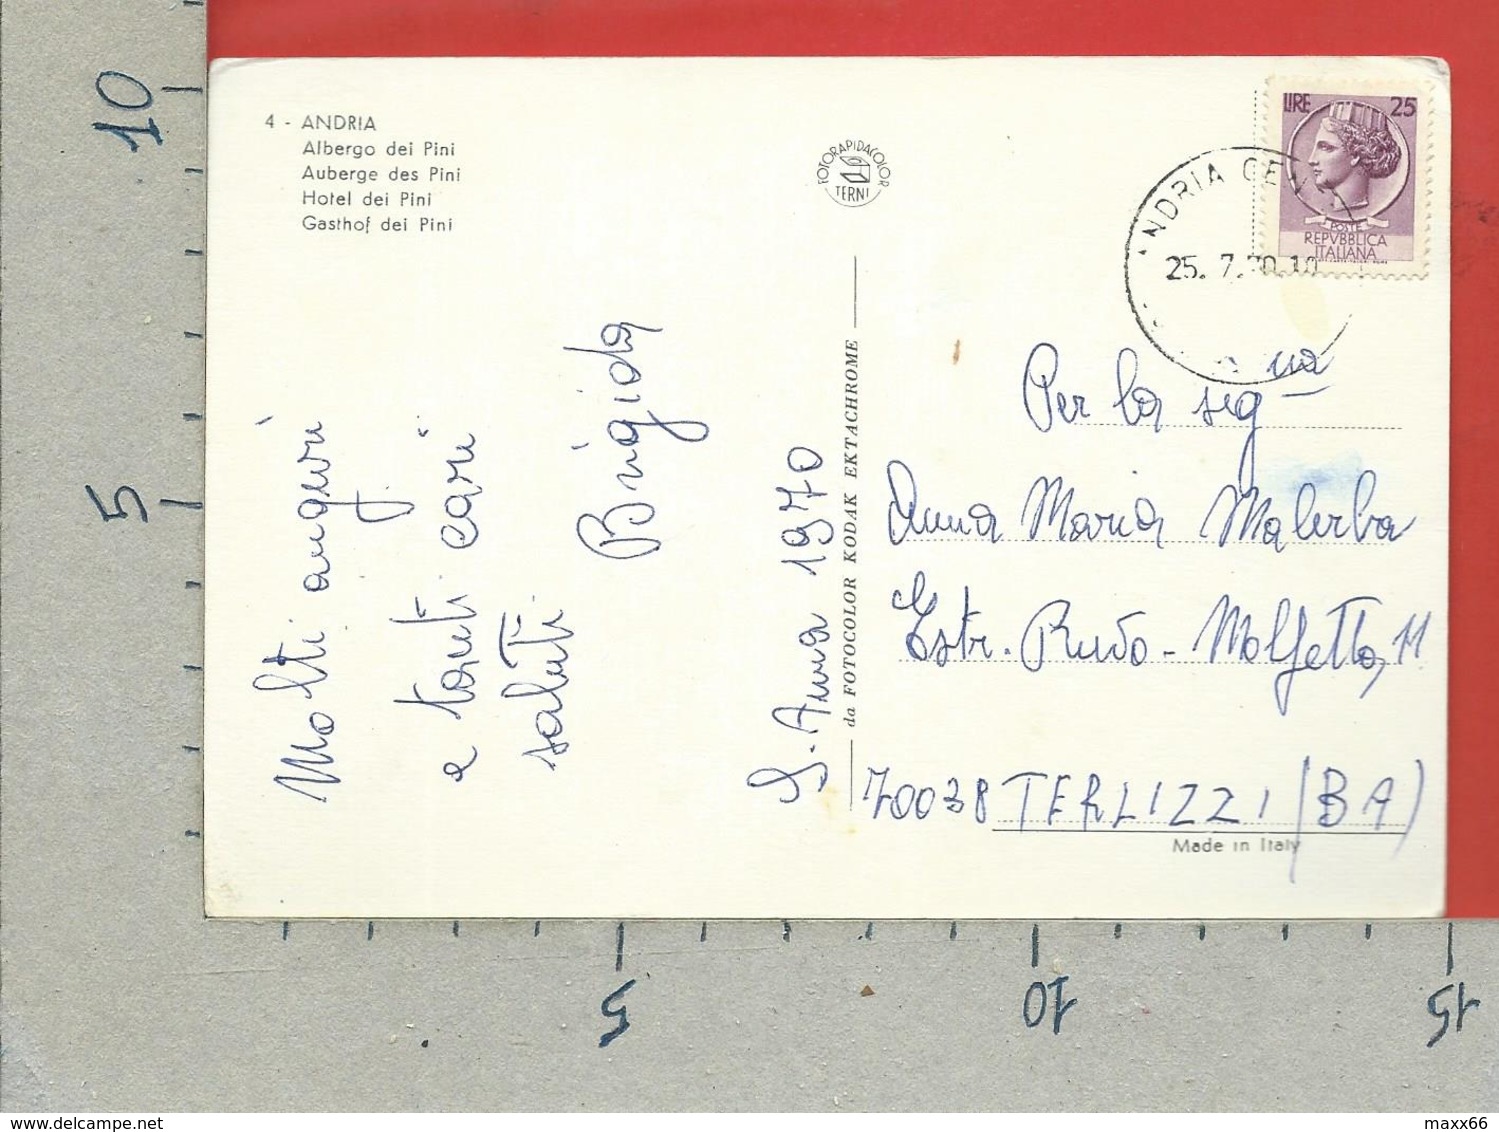 4 - ANDRIA
Albergo dei Pini
Auberge des Pini
Hotel dei Pini
Gasthof dei Pini
FOTORAPIDACOLOR
TERNI
LIRE 25
POSTE
REPVBBLICA
ITALIANA
ANDRIA CE
25. 7.70.10
Molti auguri
e tanti cari
saluti.
Brigida
S. Anna 1970
da FOTOCOLOR KODAK EKTACHROME
Per la sig.na
Anna Maria Malerba
Estr. Ruvo - Molfetta, 11
70038 TERLIZZI (BA)
Made in Italy
10
5
5
10
15
maxx66
delcampe.net